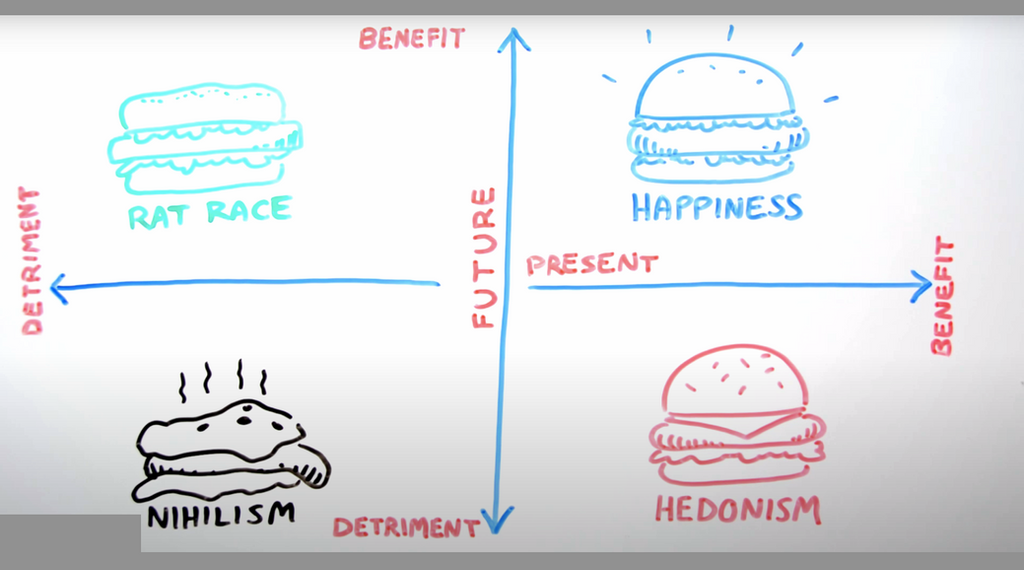 BENEFIT
RAT RACE
HAPPINESS
DETRIMENT
FUTURE
PRESENT
BENEFIT
NIHILISM
HEDONISM
DETRIMENT